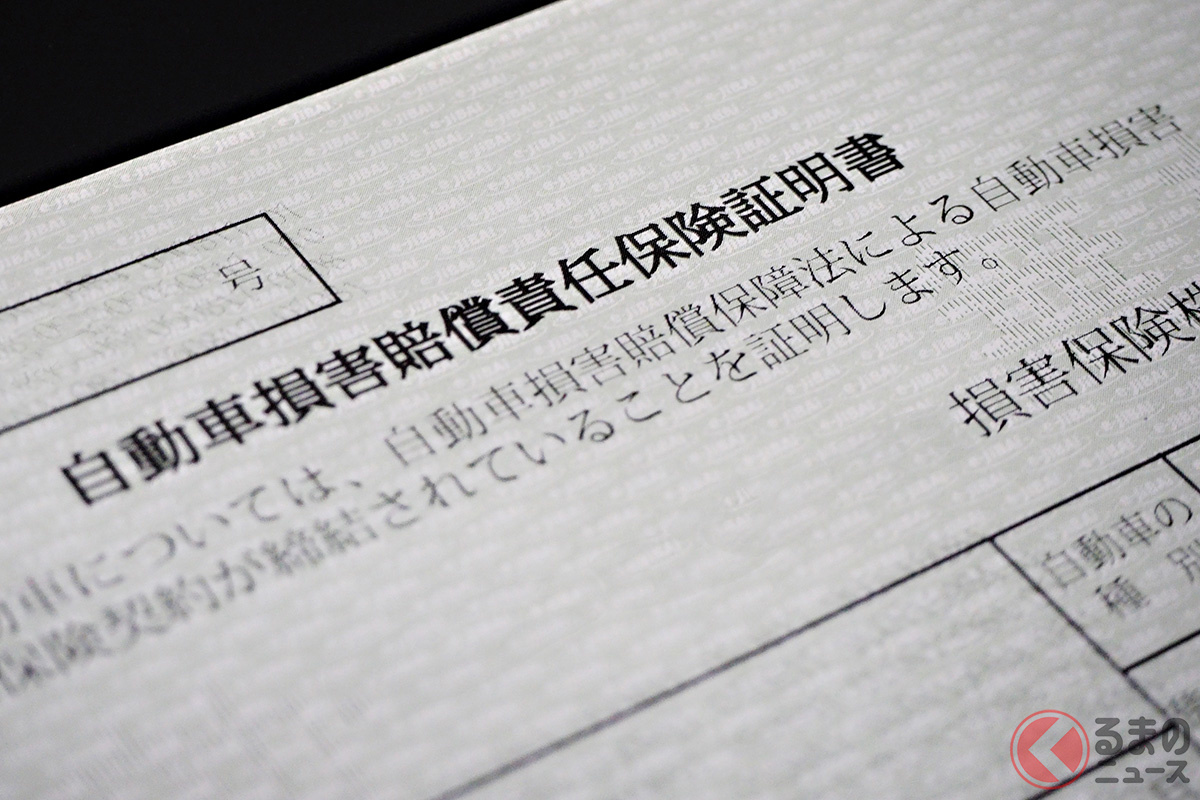 号
自動車損害賠償責任保険証明書
動車については、自動車損害賠償保障法による自動車損害
保険契約が締結されていることを証明します。
損害保険
自動車の
種 別
JIBAI
くるまの
ニュース